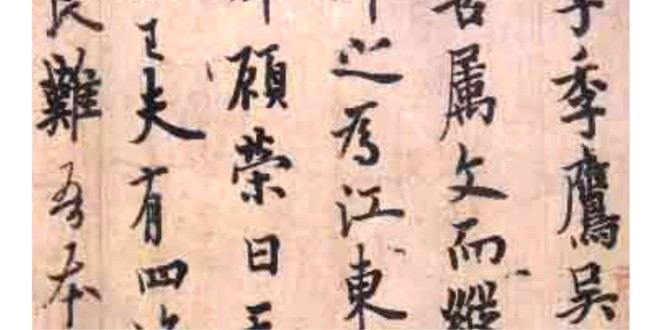 字季鷹吳
善属文而縱
之為江東
顧榮曰天
已夫有四
良難吾本